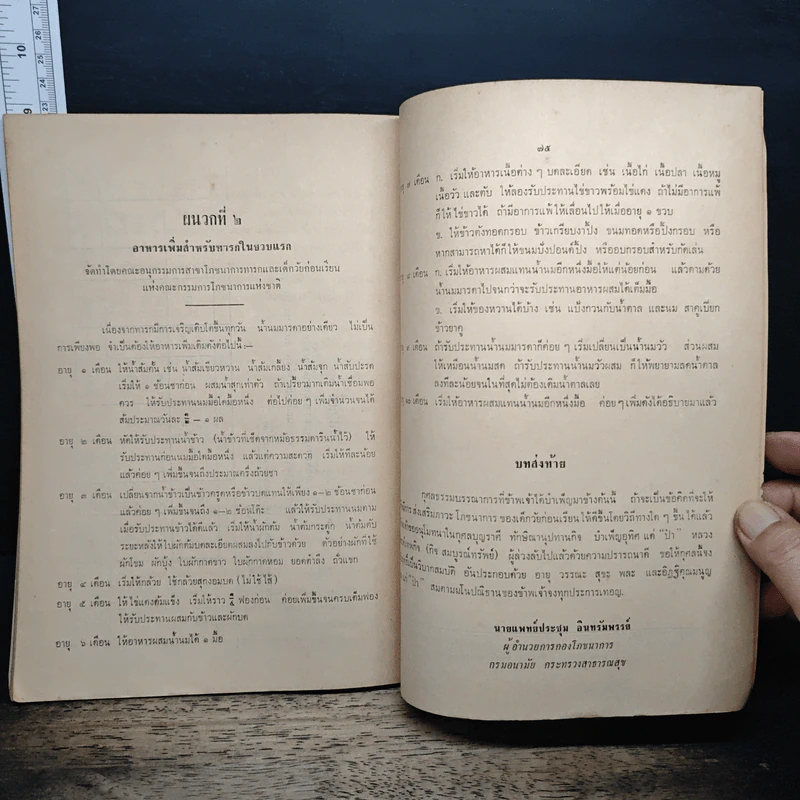 ผนวกที่ ๒
อาหารเพิ่มสำหรับทารกในขวบแรก
จัดทำโดยคณะอนุกรรมการสาขาโภชนาการทารกและเด็กวัยก่อนเรียน
แห่งคณะกรรมการโภชนาการแห่งชาติ
เนื่องจากทารกมีการเจริญเติบโตขึ้นทุกวัน น้ำนมมารดาอย่างเดียว ไม่เป็น
การเพียงพอ จำเป็นต้องให้อาหารเพิ่มเติมดังต่อไปนี้:—
อายุ ๑ เดือน ให้น้ำส้มคั้น เช่น น้ำส้มเขียวหวาน น้ำส้มเกลี้ยง น้ำส้มจุก น้ำสับปะรด
เริ่มให้ ๑ ช้อนชาก่อน ผสมน้ำสุกเท่าตัว ถ้าเปรี้ยวมากเติมน้ำเชื่อมพอ
ควร ให้รับประทานนมมื้อใดมื้อหนึ่ง ต่อไปค่อย ๆ เพิ่มจำนวนจนได้
ส้มประมาณวันละ ½ — ๑ ผล
อายุ ๒ เดือน หัดให้รับประทานน้ำข้าว (น้ำข้าวที่เช็ดจากหม้อธรรมดารินน้ำไว้) ให้
รับประทานก่อนนมมื้อใดมื้อหนึ่ง แล้วแต่ความสะดวก เริ่มให้ทีละน้อย
แล้วค่อย ๆ เพิ่มขึ้นจนถึงประมาณครึ่งถ้วยชา
อายุ ๓ เดือน เปลี่ยนจากน้ำข้าวเป็นข้าวครูดหรือข้าวบดแทนให้เพียง ๑—๒ ช้อนชาก่อน
แล้วค่อย ๆ เพิ่มขึ้นจนถึง ๑—๒ ช้อนโต๊ะ แล้วให้รับประทานนมตาม
เมื่อรับประทานข้าวได้ดีแล้ว เริ่มให้น้ำผักต้ม น้ำต้มกระดูก น้ำต้มตับ
ระยะหลังให้ใบผักต้มบดละเอียดผสมลงไปกับข้าวด้วย ตัวอย่างผักที่ใช้
ผักโขม ผักบุ้ง ใบผักกาดขาว ใบผักกาดหอม ยอดตำลึง ถั่วแขก
อายุ ๔ เดือน เริ่มให้กล้วย ใช้กล้วยสุกงอมบด (ไม่ใช้ไส้)
อายุ ๕ เดือน ให้ไข่แดงต้มแข็ง เริ่มให้ราว ฟองก่อน ค่อยเพิ่มขึ้นจนครบเต็มฟอง
ให้รับประทานผสมกับข้าวและผักบด
อายุ ๖ เดือน ให้อาหารผสมน้ำนมได้ ๑ มื้อ
๗๕
เดือน ก. เริ่มให้อาหารเนื้อต่าง ๆ บดละเอียด เช่น เนื้อไก่ เนื้อปลา เนื้อหมู
เนื้อวัว และตับ ให้ลองรับประทานไข่ขาวพร้อมไข่แดง ถ้าไม่มีอาการแพ้
ก็ให้ไข่ขาวได้ ถ้ามีอาการแพ้ให้เลื่อนไปให้เมื่ออายุ ๑ ขวบ
ข. ให้ข้าวตังทอดกรอบ ข้าวเกรียบงาปิ้ง ขนมทอดหรือปิ้งกรอบ หรือ
หากสามารถหาได้ก็ให้ขนมปังปอนด์ปิ้ง หรืออบกรอบสำหรับกัดเล่น
เดือน ก. เริ่มให้อาหารผสมแทนน้ำนมอีกหนึ่งมื้อให้แต่น้อยก่อน แล้วตามด้วย
น้ำนมมารดาไปจนกว่าจะรับประทานอาหารผสมได้เต็มมื้อ
ข. เริ่มให้ของหวานได้บ้าง เช่น แป้งกวนกับน้ำตาล และนม สาคูเปียก
ข้าวยาคู
เดือน ถ้ารับประทานน้ำนมมารดาก็ค่อย ๆ เริ่มเปลี่ยนเป็นน้ำนมวัว ส่วนผสม
ให้เหมือนน้ำนมสด ถ้ารับประทานน้ำนมวัวผสม ก็ให้พยายามลดน้ำตาล
ลงทีละน้อยจนในที่สุดไม่ต้องเติมน้ำตาลเลย
เดือน เริ่มให้อาหารผสมแทนน้ำนมอีกหนึ่งมื้อ ค่อย ๆ เพิ่มดังได้อธิบายมาแล้ว
บทส่งท้าย
กุศลธรรมบรรณาการที่ข้าพเจ้าได้บำเพ็ญมาข้างต้นนี้ ถ้าจะเป็นข้อคิดที่จะให้
การส่งเสริมภาวะ โภชนาการ ของเด็กวัยก่อนเรียน ให้ดีขึ้นโดยวิถีทางใด ๆ ขึ้น ได้แล้ว
ขออนุโมทนาในกุศลบุญราศี ทักษิณานุปทานกิจ บำเพ็ญอุทิศ แด่ "ป๊า" หลวง
(กิจ สมบูรณ์ทรัพย์) ผู้ล่วงลับไปแล้วด้วยความปรารถนาดี ขอให้กุศลนี้จง
เป็นวิบากสมบัติ อันประกอบด้วย อายุ วรรณะ สุขะ พละ และอิฏฐิคุณมนูญ
"ป๊า" สมตามมโนปณิธานของข้าพเจ้าจงทุกประการเทอญ.
นายแพทย์ประชุม อินทรัมพรรย์
ผู้อำนวยการกองโภชนาการ
กรมอนามัย กระทรวงสาธารณสุข
10
9
27
26
25
24
23